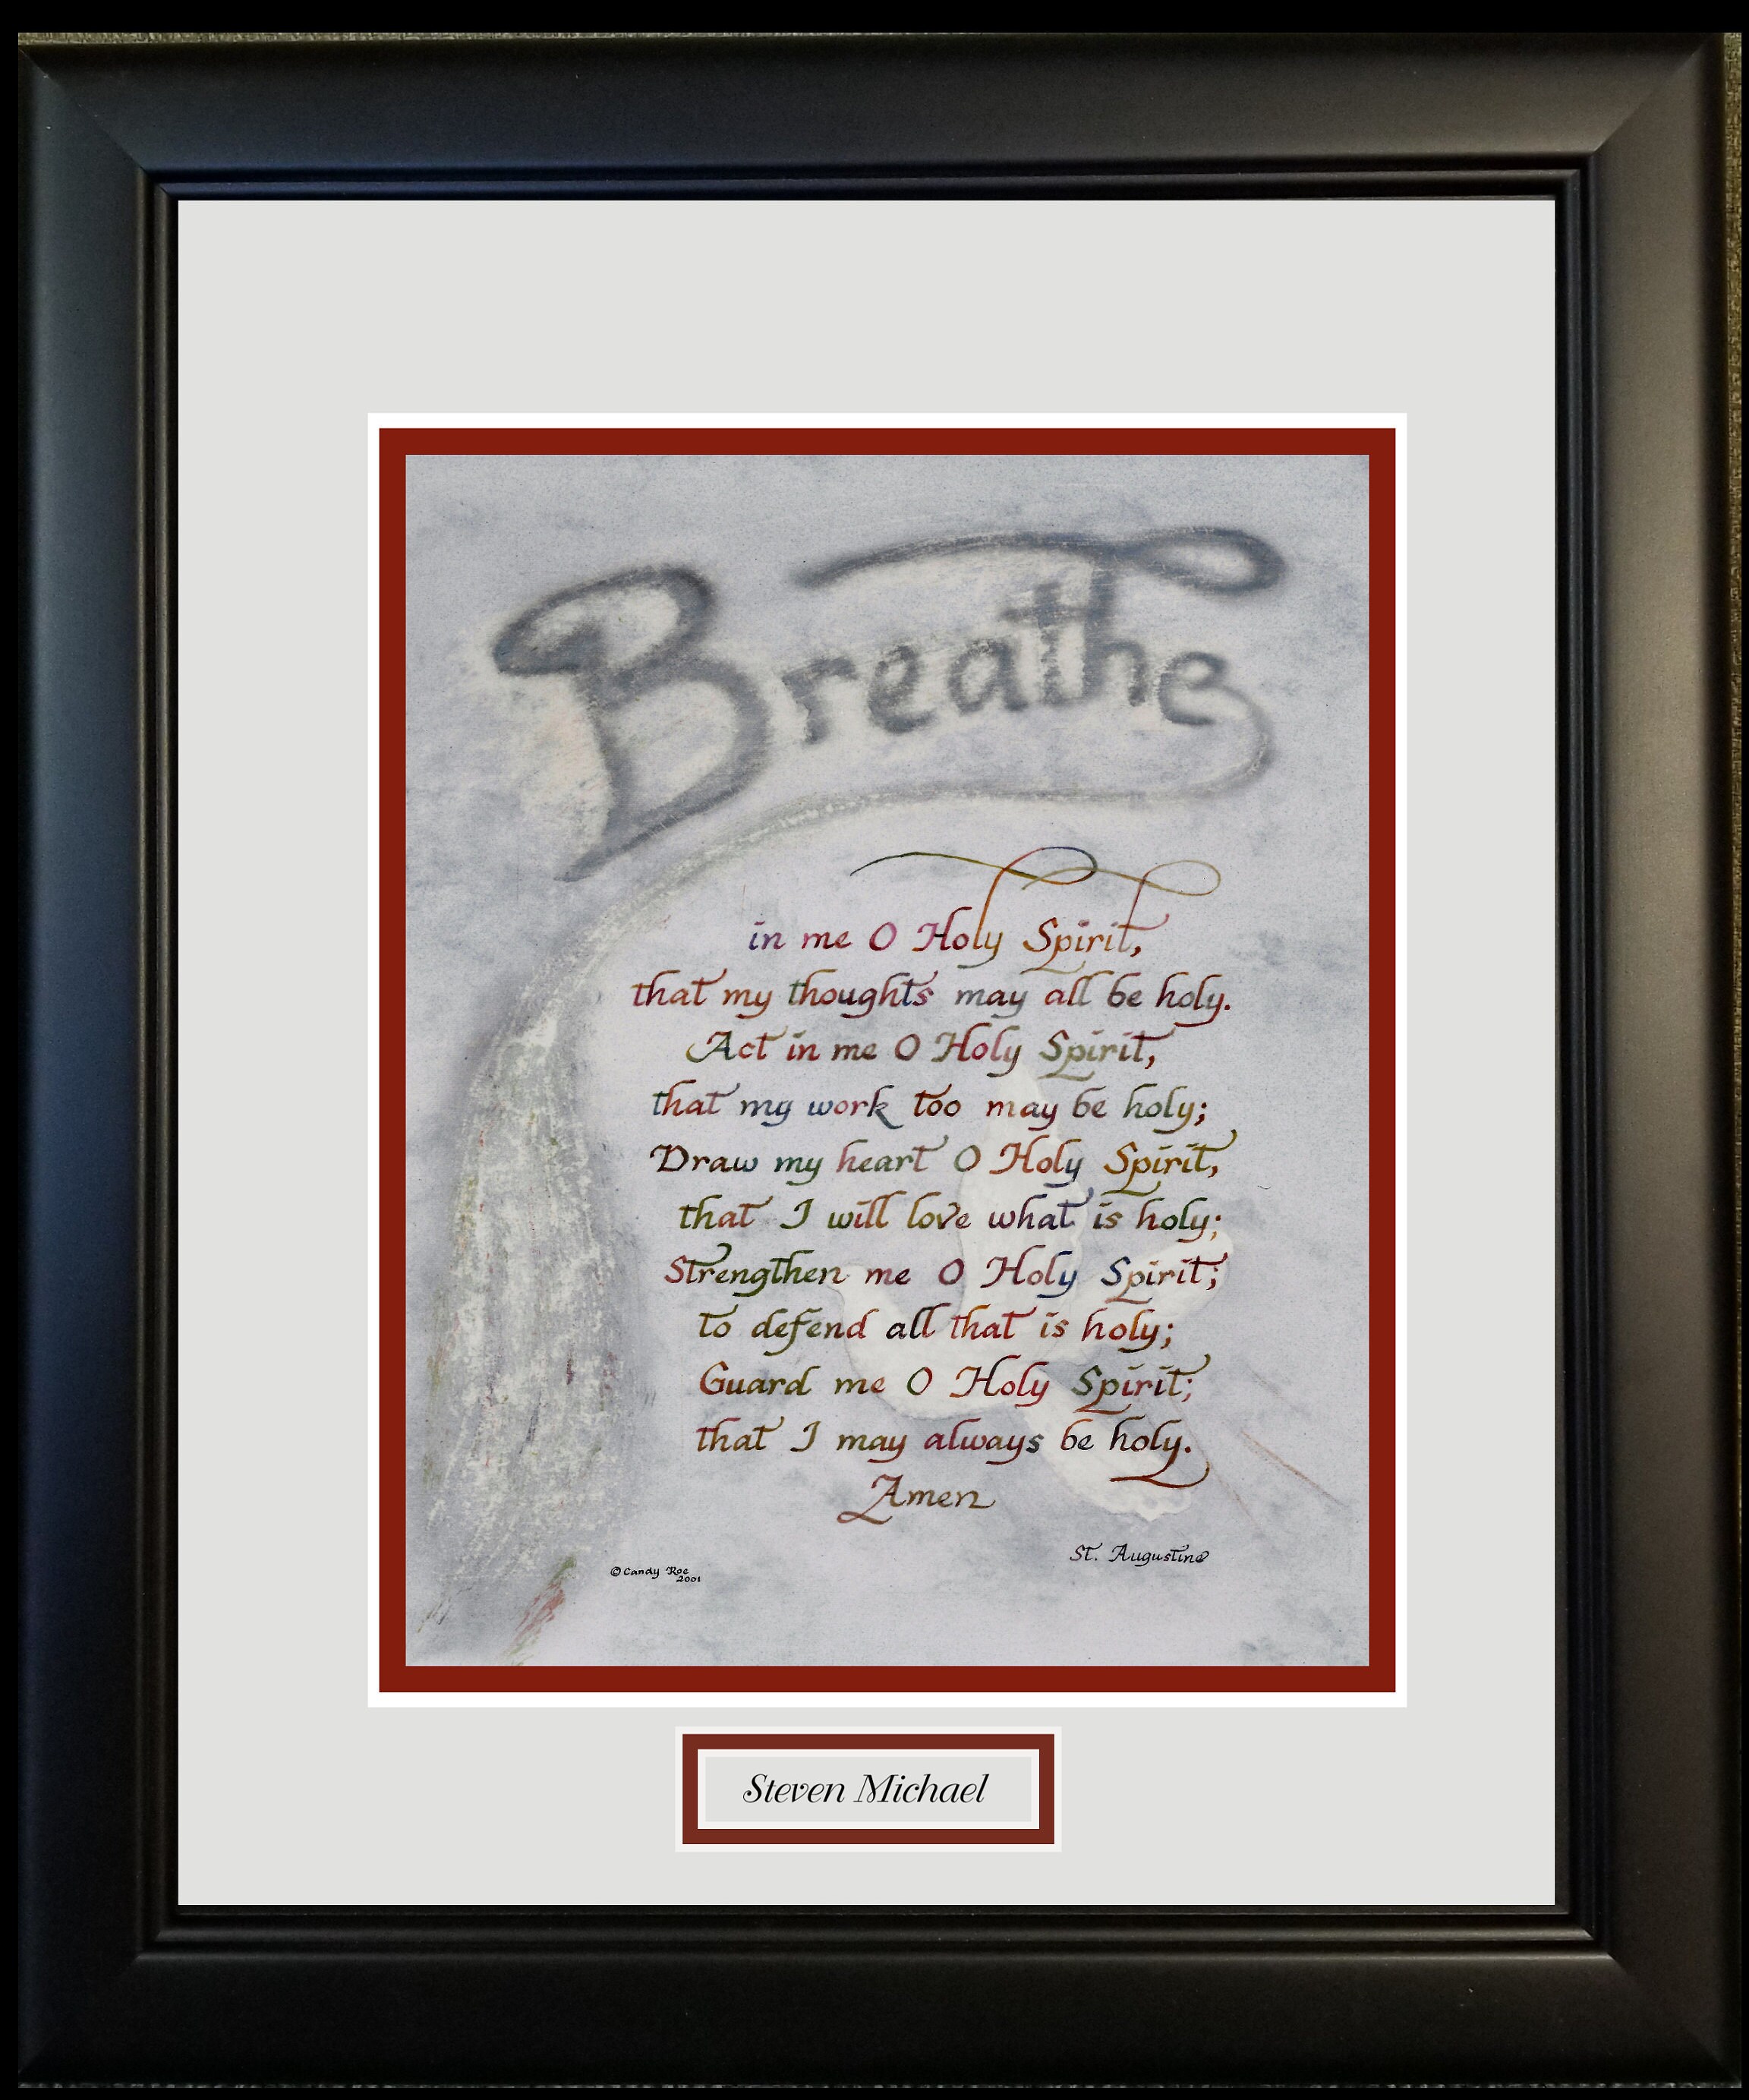 Breathe
in me O Holy Spirit,
that my thoughts may all be holy.
Act in me O Holy Spirit,
that my work too may be holy;
Draw my heart O Holy Spirit,
that I will love what is holy;
Strengthen me O Holy Spirit;
to defend all that is holy;
Guard me O Holy Spirit;
that I may always be holy.
Amen
St. Augustine
© Candy Roe
2001
Steven Michael